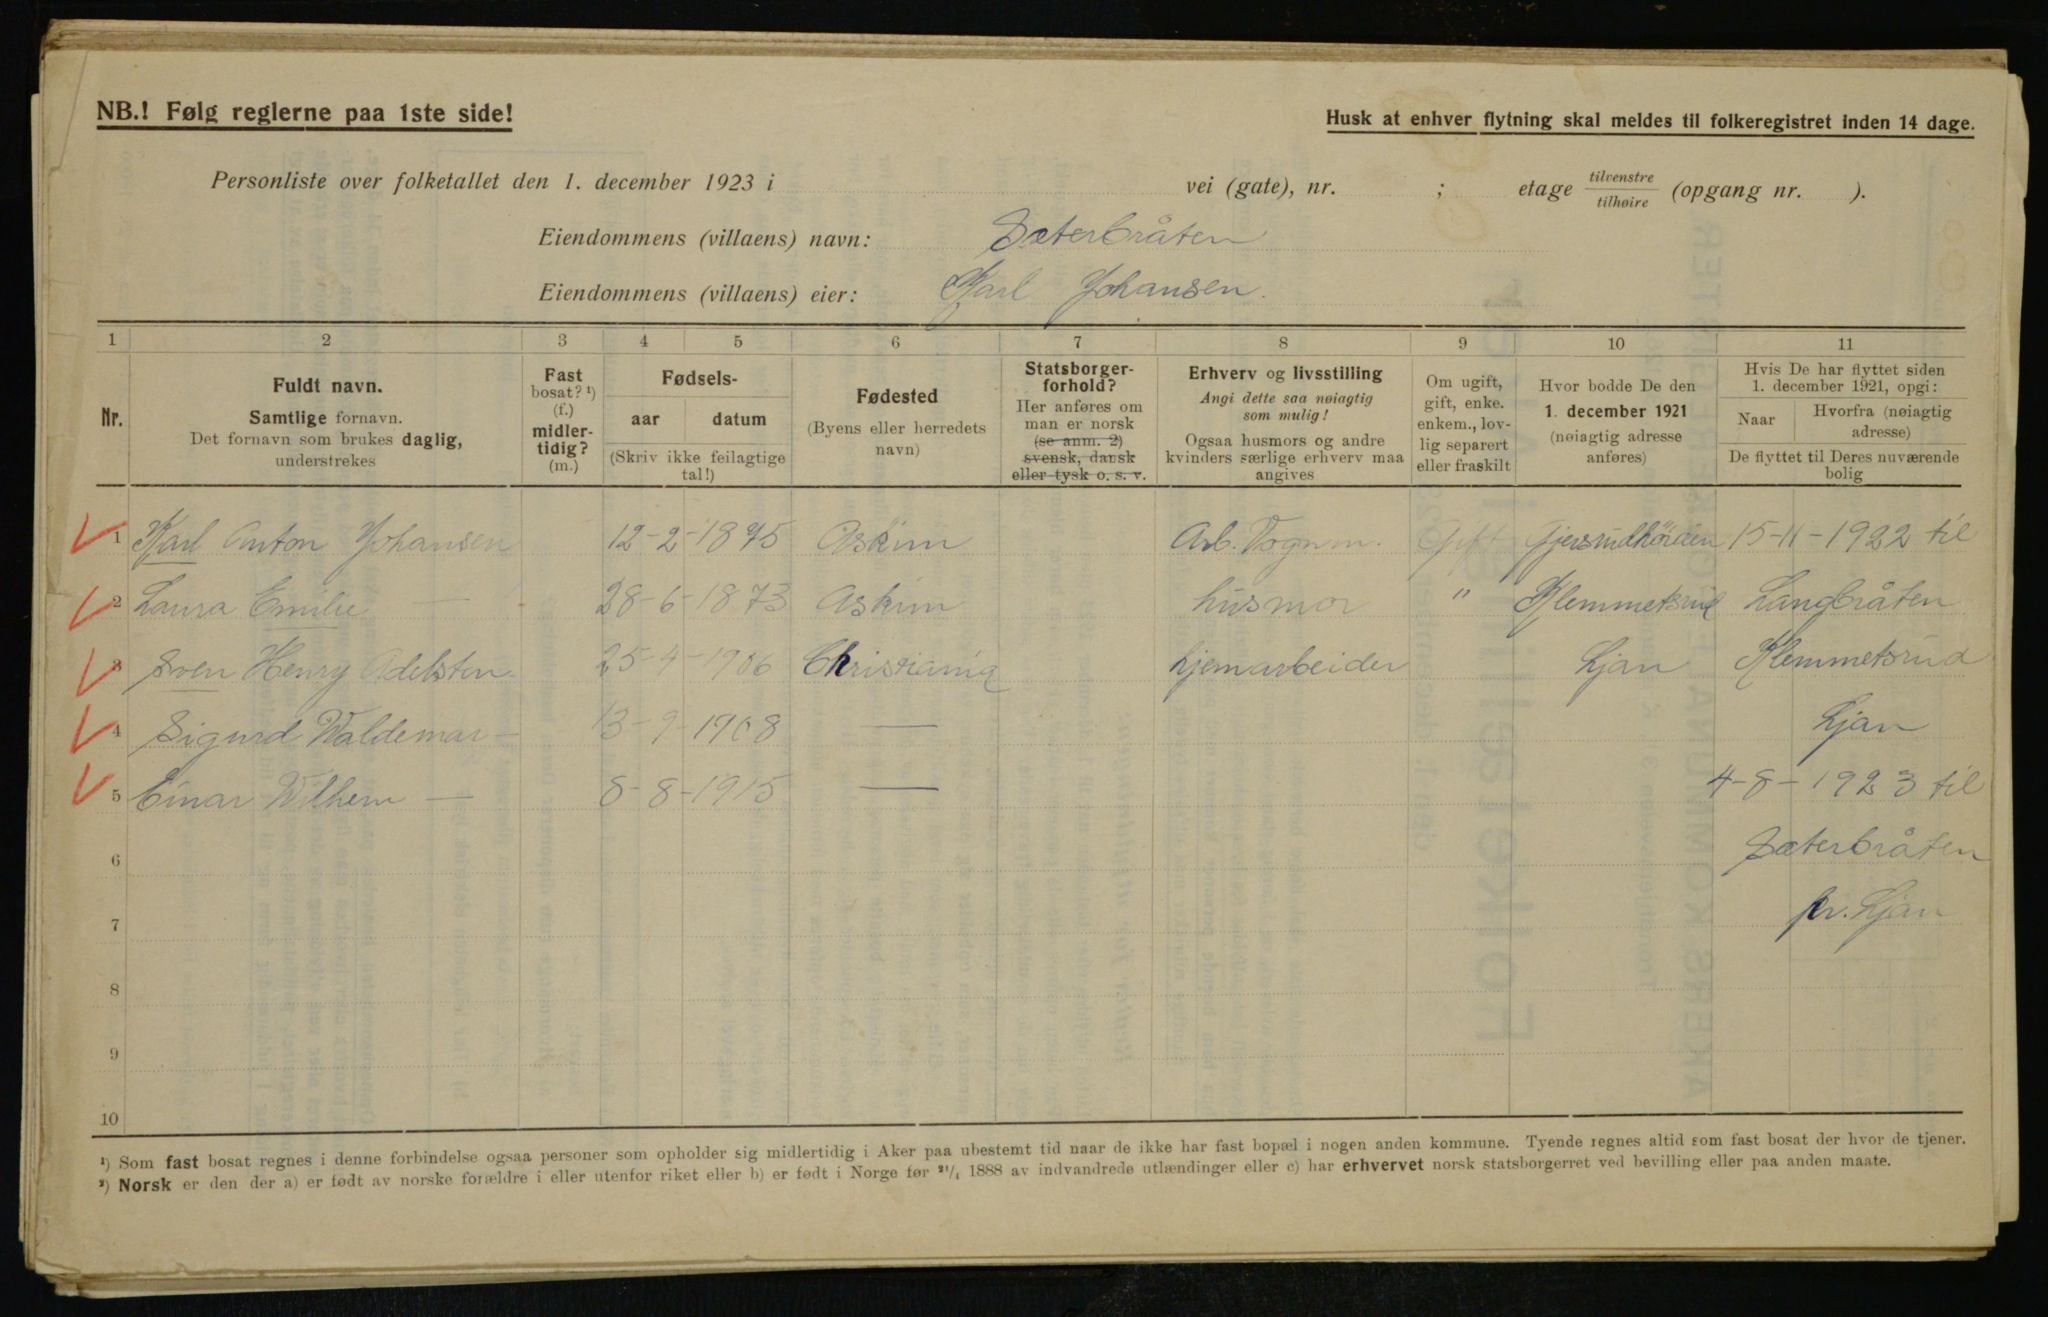 NB.! Følg reglerne paa 1ste side!
Husk at enhver flytning skal meldes til folkeregistret inden 14 dage.
Personliste over folketallet den 1. december 1923 i vei (gate), nr. ; etage tilvenstre tilhøire (opgang nr. ).
Eiendommens (villaens) navn: Sæterbråten
Eiendommens (villaens) eier: Karl Johansen.
1 2 3 4 5 6 7 8 9 10 11
Nr.
Fuldt navn.
Samtlige fornavn.
Det fornavn som brukes daglig,
understrekes
Fast
bosat? ¹)
(f.)
midler-
tidig?
(m.)
Fødsels-
aar datum
(Skriv ikke feilagtige
tal!)
Fødested
(Byens eller herredets
navn)
Statsborger-
forhold?
Her anføres om
man er norsk
(se anm. 2)
svensk, dansk
eller tysk o. s. v.
Erhverv og livsstilling
Angi dette saa nøiagtig
som mulig!
Ogsaa husmors og andre
kvinders særlige erhverv maa
angives
Om ugift,
gift, enke.
enkem., lov-
lig separert
eller fraskilt
Hvor bodde De den
1. december 1921
(nøiagtig adresse
anføres)
Hvis De har flyttet siden
1. december 1921, opgi:
Naar Hvorfra (nøiagtig
adresse)
De flyttet til Deres nuværende
bolig
1 Karl Anton Johansen 12-2-1875 Askim Arb. Vognm. Gift Gjersrudhörden 15-11-1922 til
2 Laura Emilie — 28-6-1873 Askim husmor " Klemmetsrud Langbråten
3 Sven Henry Adelsten 25-4-1906 Christiania hjemarbeider Ljan Klemmetsrud
4 Sigurd Waldemar — 13-9-1908 — Ljan
5 Einar Wilhem — 8-8-1915 — 4-8-1923 til
6 Sæterbråten
7 pr. Ljan
8
9
10
¹) Som fast bosat regnes i denne forbindelse ogsaa personer som opholder sig midlertidig i Aker paa ubestemt tid naar de ikke har fast bopæl i nogen anden kommune. Tyende regnes altid som fast bosat der hvor de tjener.
²) Norsk er den der a) er født av norske forældre i eller utenfor riket eller b) er født i Norge før ²¹/₁ 1888 av indvandrede utlændinger eller c) har erhvervet norsk statsborgerret ved bevilling eller paa anden maate.